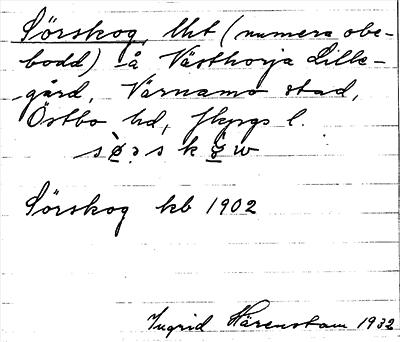 Sörskog, lht (numera obe-
bodd) å Västhorja Lille-
gård, Värnamo stad,
Östbo hd, Jkpgs l.
Sörskog kb 1902
Ingrid Härenstam 1932